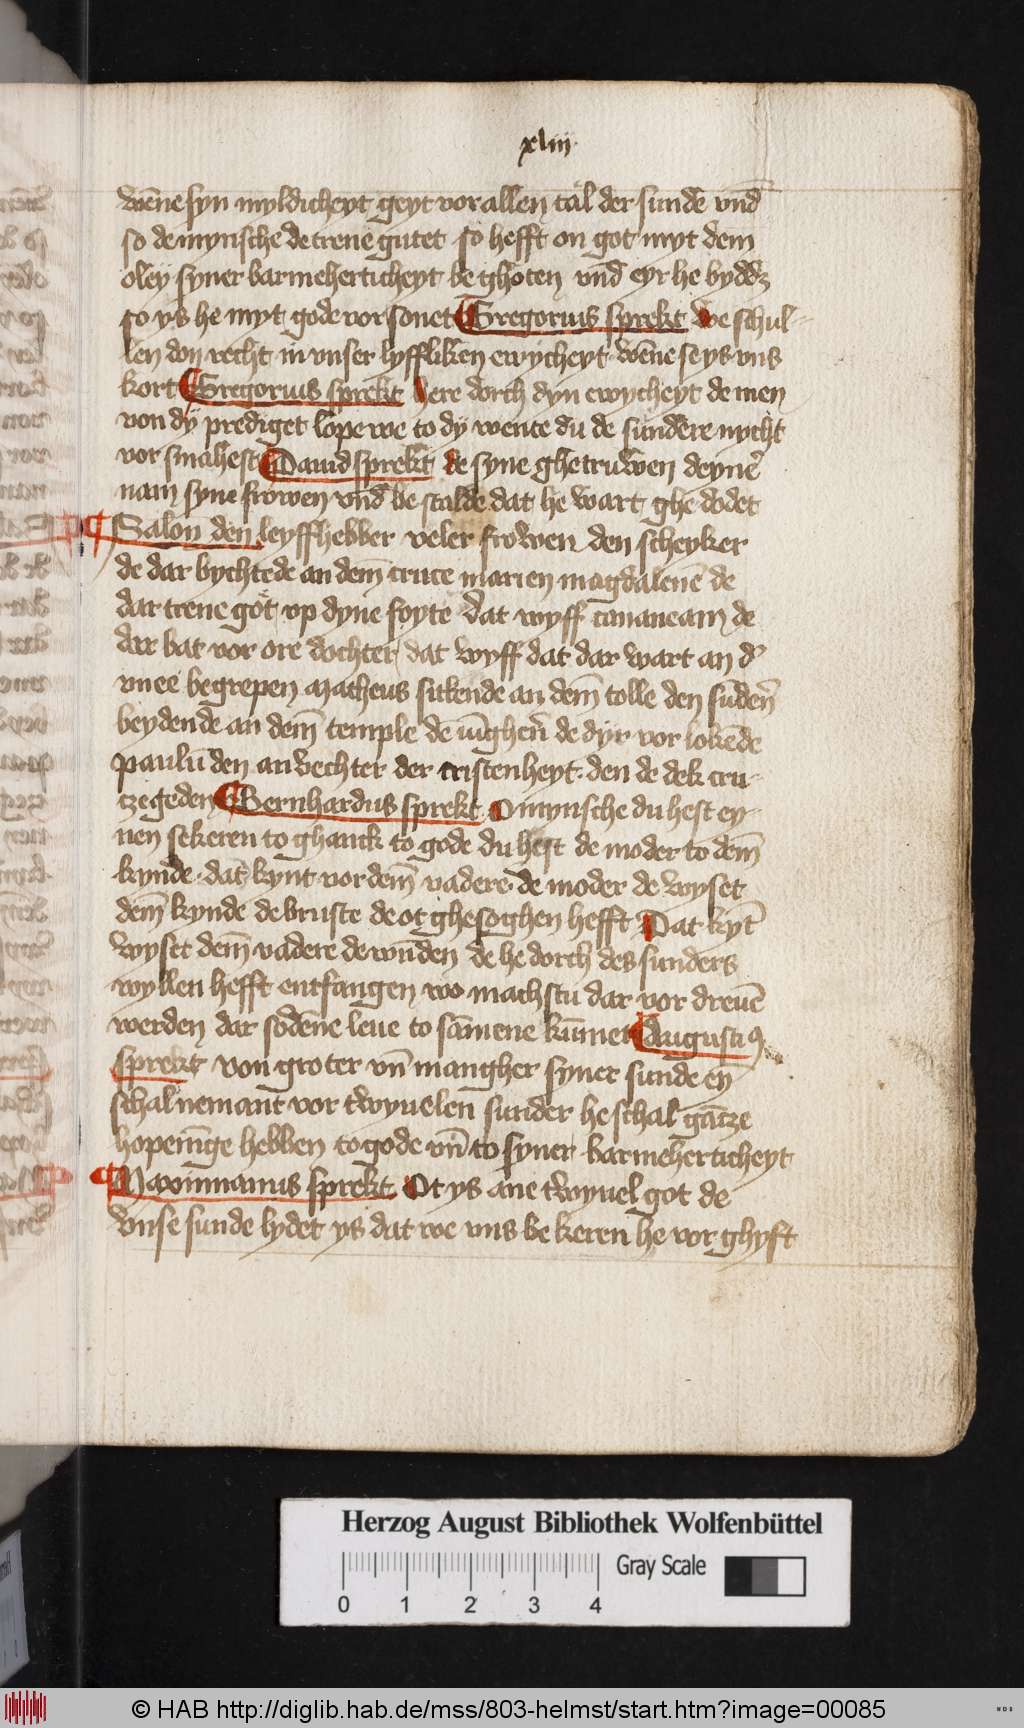 xliii
wēne syn myldicheyt geyt vor allen tal der sunde vnd
so de mynsche de trene gutet so hefft on got myt dem
oley syner barmeherticheyt be ghoten vnd eyr he byddet
so ys he myt gode vor sonet Gregorius sprekt we schul-
len don recht in vnser lyffliken ewycheyt wēne se ys vns
kort Gregorius sprekt here dorch dyn ewycheyt de men
von dy prediget lope we to dy wente du de sundere nycht
vor smahest Dauid sprekt de syne ghetruwen deynē
nam syne frowen vnd be stalde dat he wart ghe dodet
Salon den leyffhebber veler frowen den scheyker
de dar bychtede an dem cruce marien magdalenē de
dar trene got vp dyne foyte dat wyff cananeam de
dar bat vor ore dochter dat wyff dat dar wart an d'
vnee begrepen Matheus sittende an dem tolle den sūden̄
beydende an dem̄ temple de iūgher̄ de dyr vor lokēde
paulū den anvechter der cristenheyt den de dek cru-
czegeden Bernhardus sprekt O mynsche du hest ey-
nen sekeren to ghanck to gode du hest de moder to dem̄
kynde dat kynt vor dem̄ vadere de moder de wyset
dem̄ kynde de bruste de ot ghesoghen hefft Dat kyt̄
wyset dem̄ vadere de wūden de he dorch des sunders
wyllen hefft entfangen wo machstu dar vor dreuē
werden dar sodēne leue to sāmene kūmet Augustiꝰ
sprekt von groter vn̄ mangher syner sunde en̄
schal nemant vor twyuelen sunder he schal gācze
hopenīge hebben to gode vn̄ to syner barmeherticheyt
Maximianus sprekt Ot ys ane twyuel got de
vnse sunde lydet ys dat we vns be keren he vor ghyft
Herzog August Bibliothek Wolfenbüttel
Gray Scale
0 1 2 3 4
© HAB http://diglib.hab.de/mss/803-helmst/start.htm?image=00085